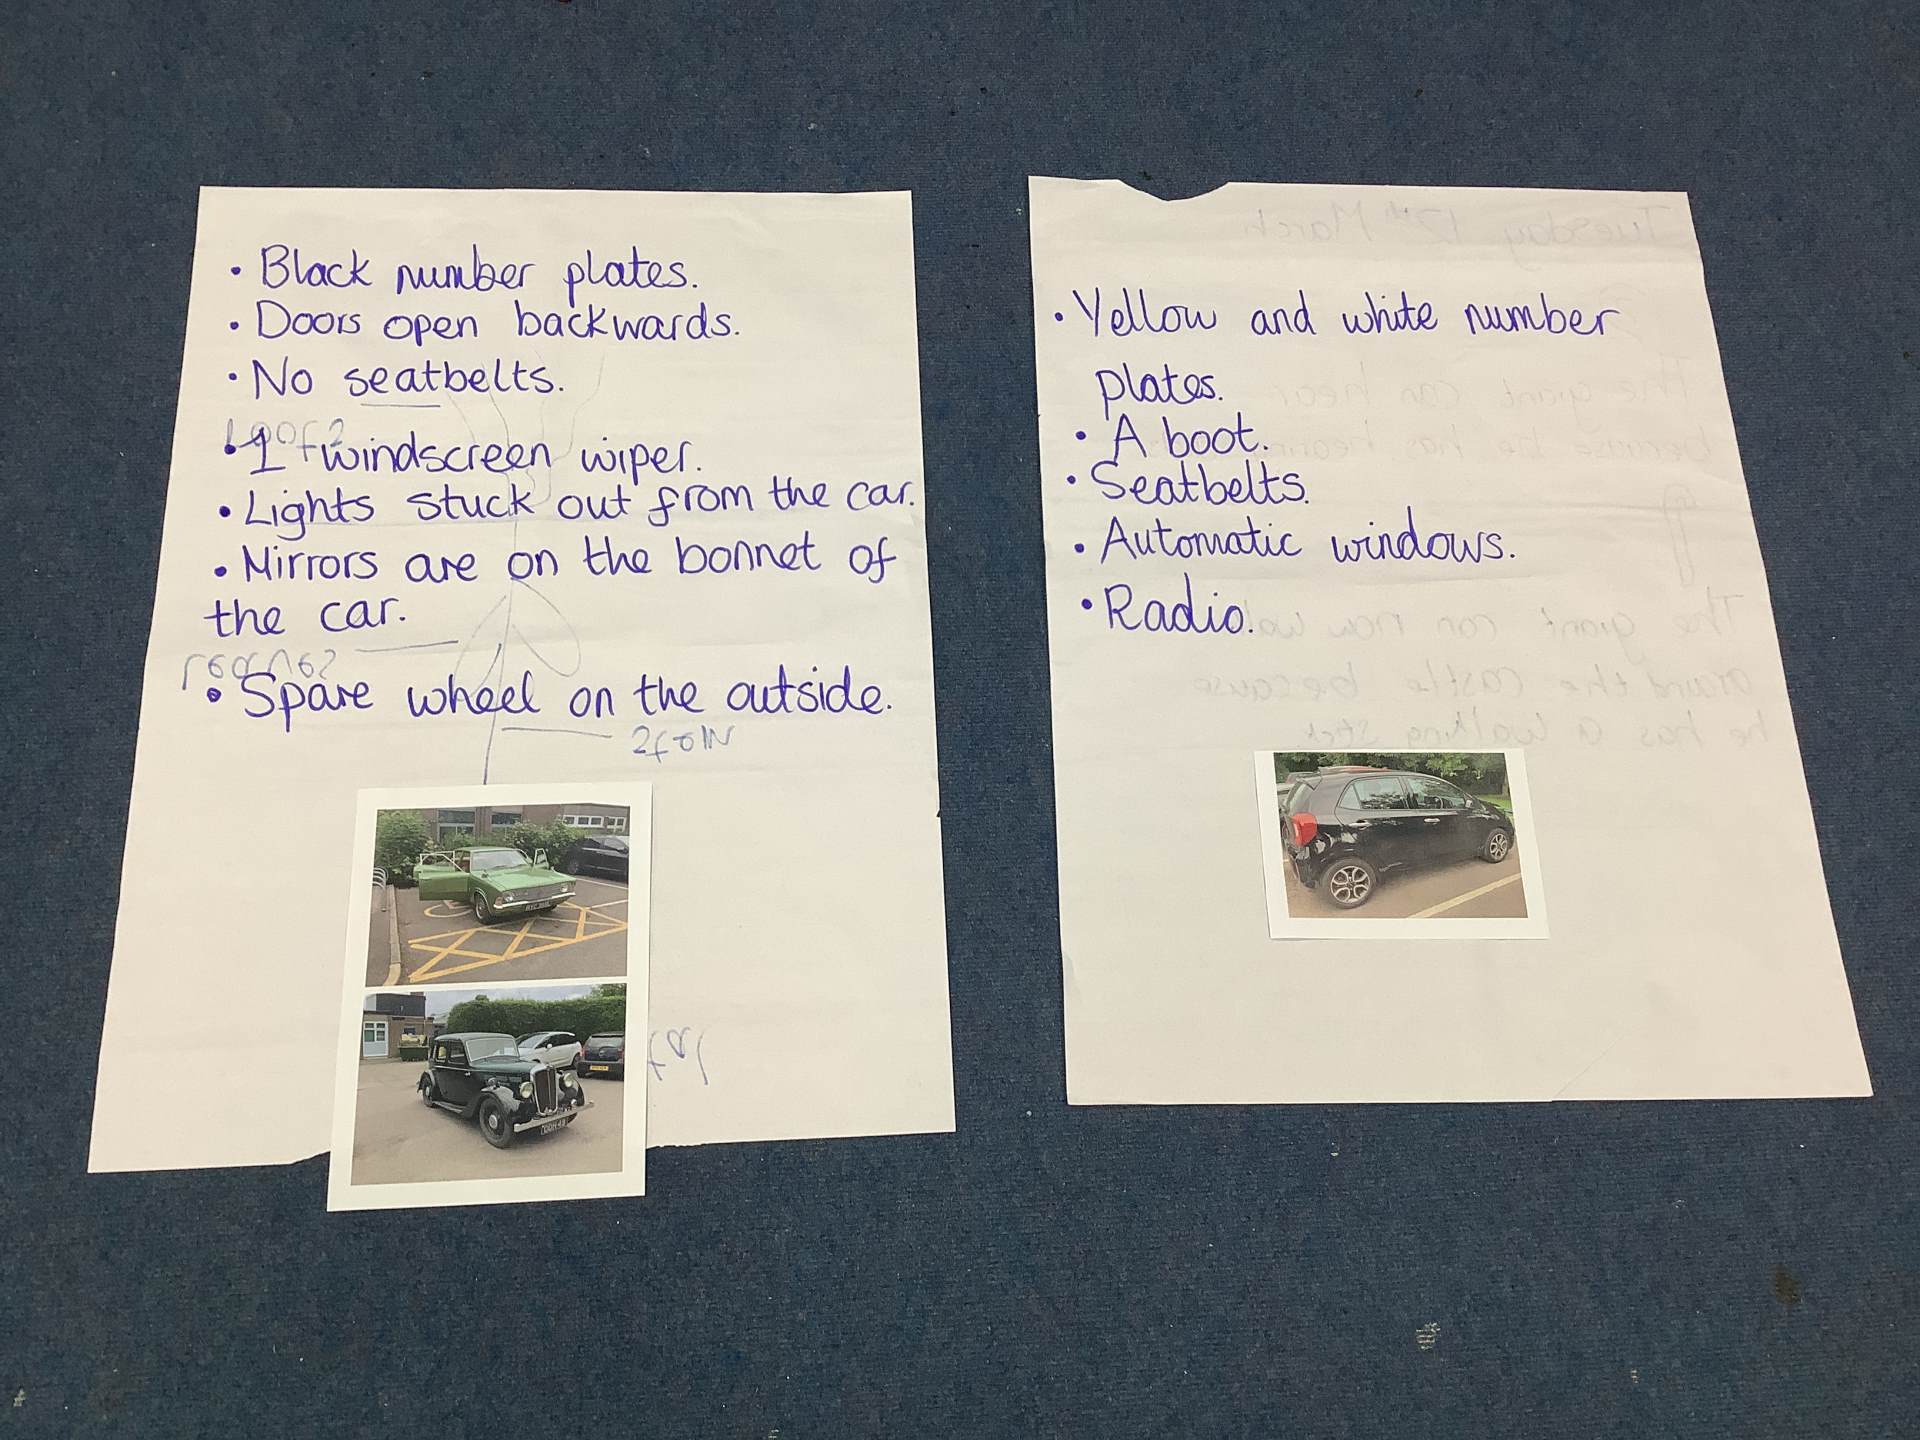 • Black number plates.
• Doors open backwards.
• No seatbelts.
• 1 windscreen wiper.
• Lights stuck out from the car.
• Mirrors are on the bonnet of
the car.
• Spare wheel on the outside.
• Yellow and white number
plates.
• A boot.
• Seatbelts.
• Automatic windows.
• Radio.
Tuesday 12th March
The giant can hear
because he has
The giant can now
around the castle because
he has a walking stick